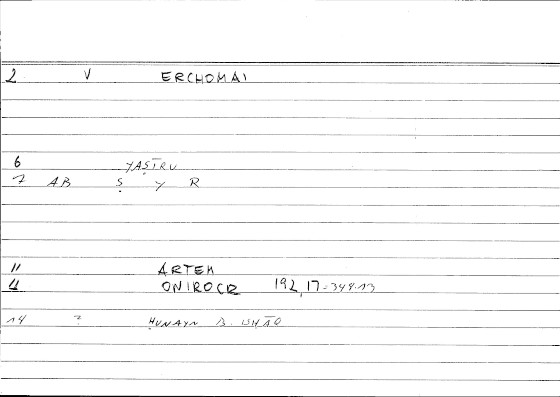 2 V ERCHOMAI
6 YAṢĪRU
7 AB Ṣ Y R
11 ARTEM
12 ONIROCR 192,17=349.13
14 ? ḤUNAYN B. ISḤĀQ